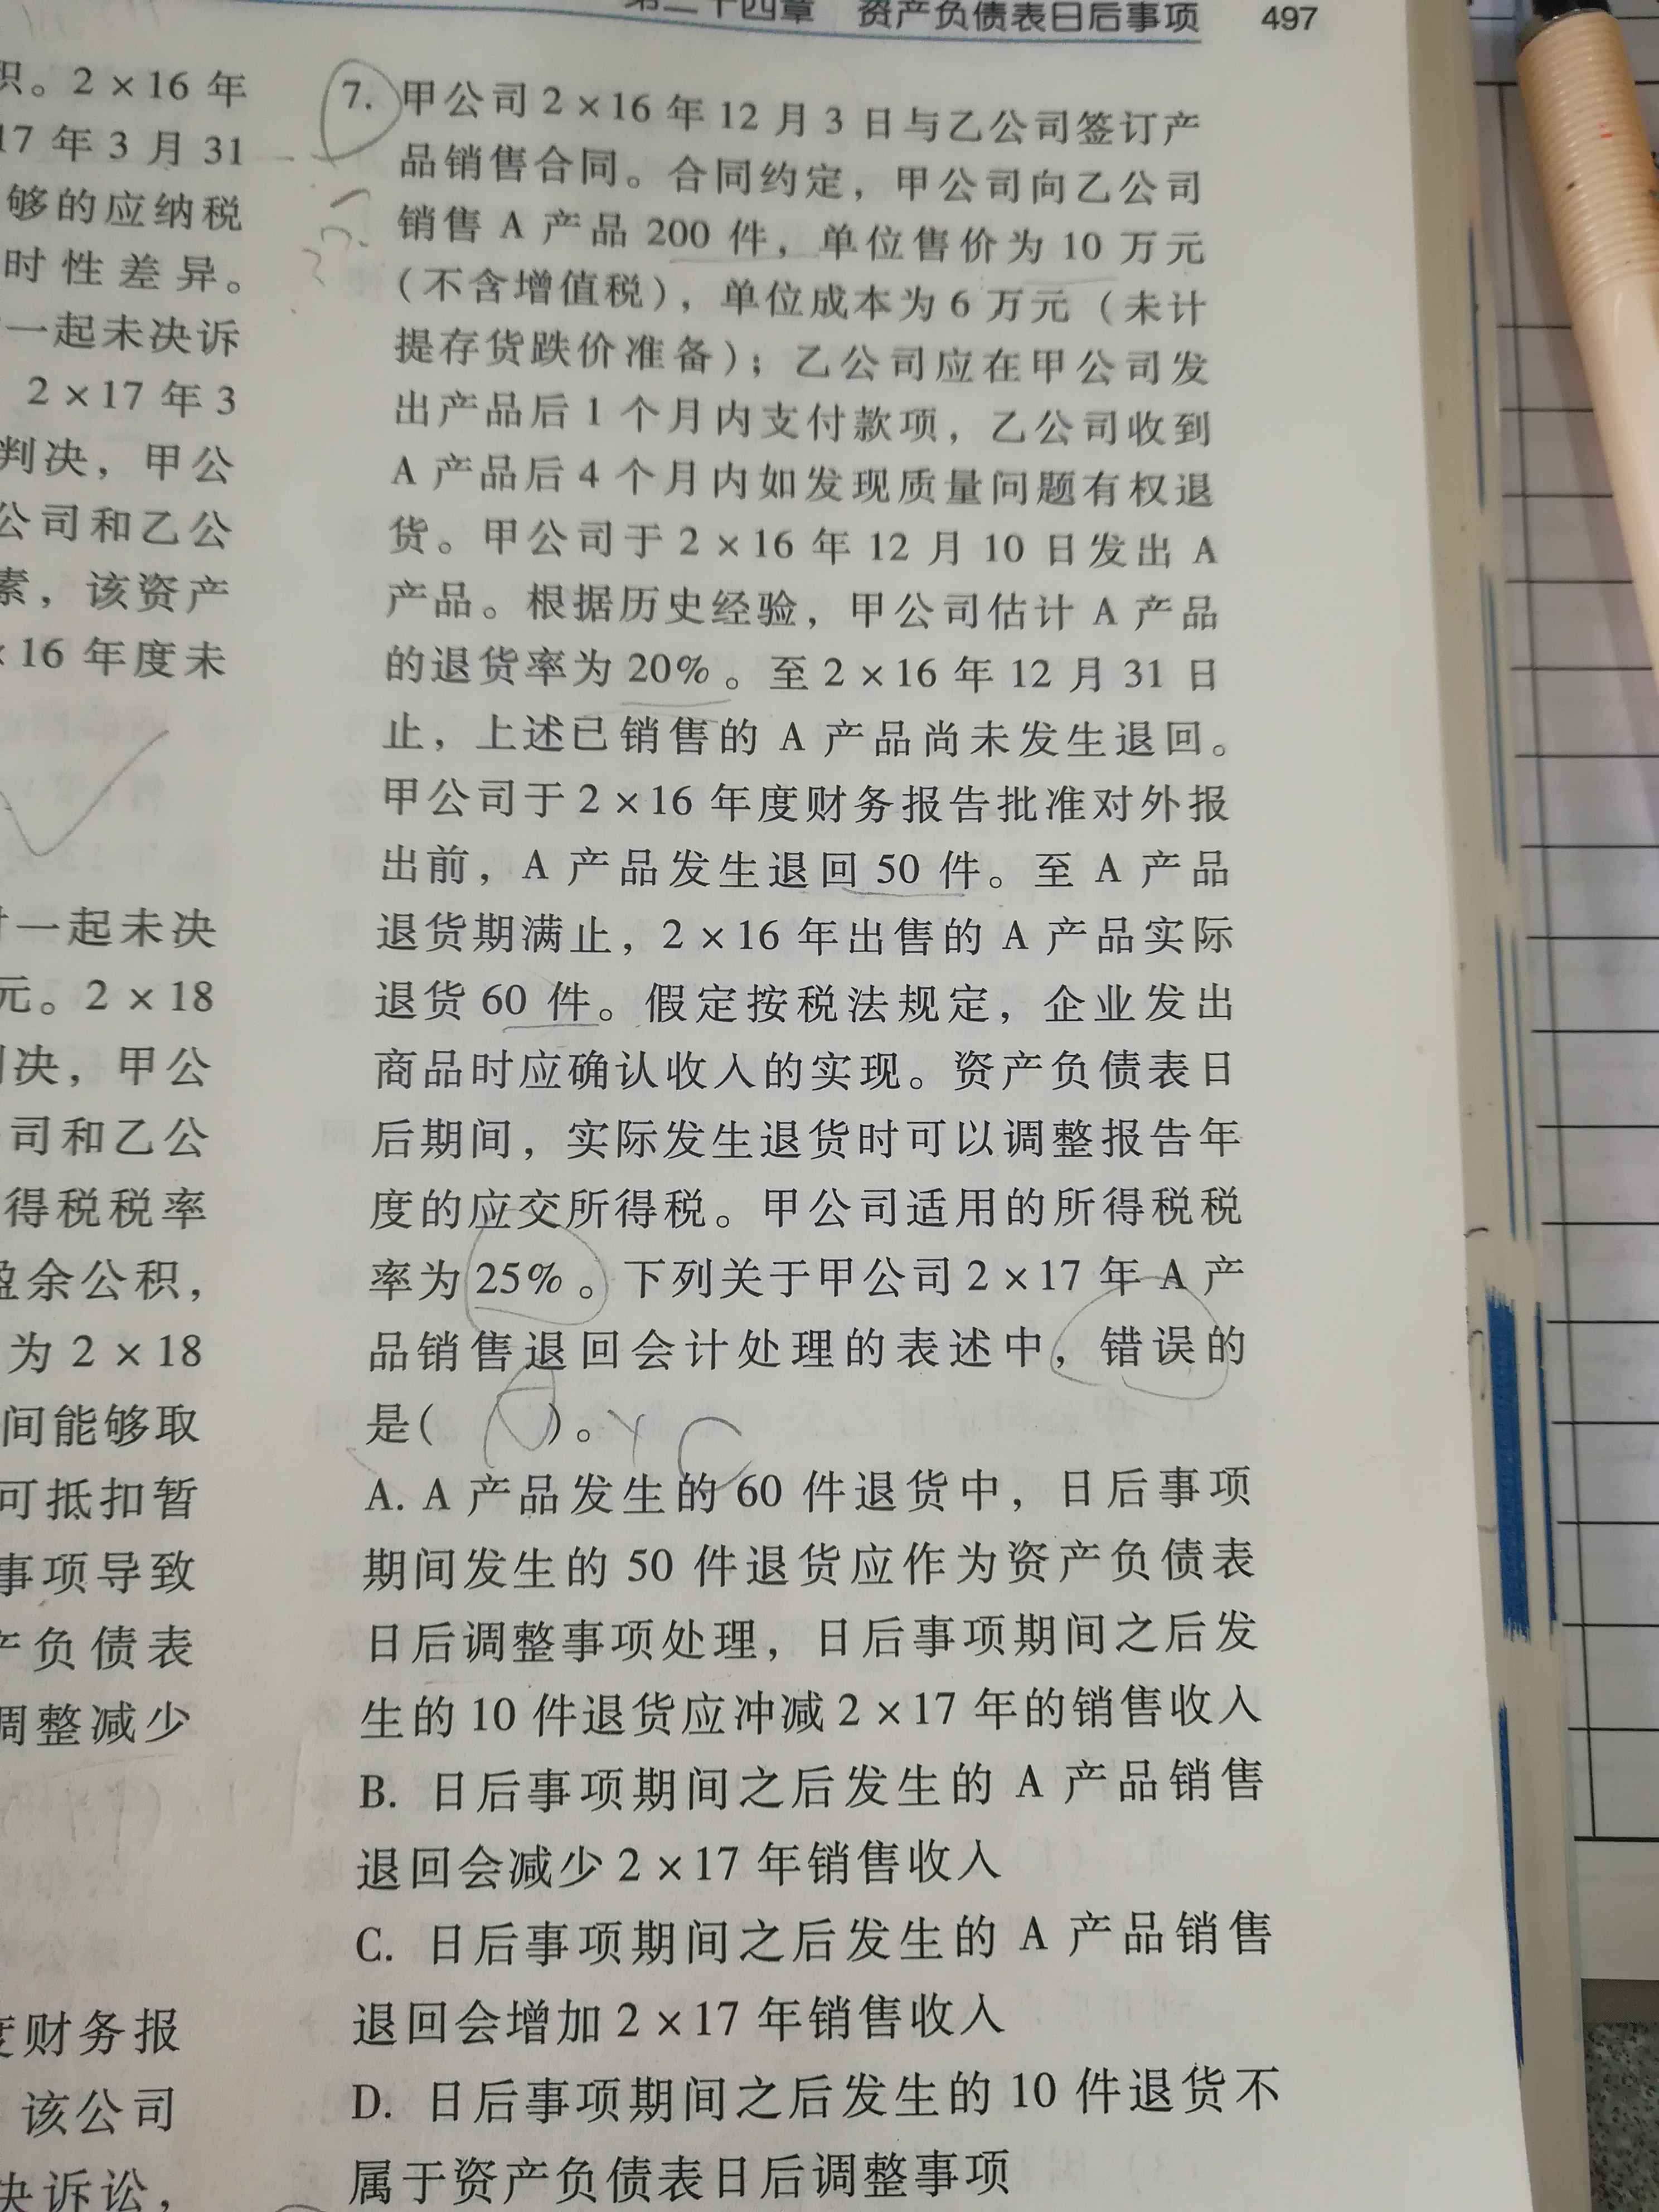 第二十四章 资产负债表日后事项 497
积。2×16年
17年3月31
够的应纳税
时性差异。
一起未决诉
2×17年3
判决，甲公
公司和乙公
素，该资产
×16年度未
一起未决
元。2×18
决，甲公
司和乙公
得税税率
盈余公积，
为2×18
间能够取
可抵扣暂
事项导致
产负债表
调整减少
度财务报
该公司
决诉讼，
7. 甲公司2×16年12月3日与乙公司签订产
品销售合同。合同约定，甲公司向乙公司
销售A产品200件，单位售价为10万元
（不含增值税），单位成本为6万元（未计
提存货跌价准备）；乙公司应在甲公司发
出产品后1个月内支付款项，乙公司收到
A产品后4个月内如发现质量问题有权退
货。甲公司于2×16年12月10日发出A
产品。根据历史经验，甲公司估计A产品
的退货率为20%。至2×16年12月31日
止，上述已销售的A产品尚未发生退回。
甲公司于2×16年度财务报告批准对外报
出前，A产品发生退回50件。至A产品
退货期满止，2×16年出售的A产品实际
退货60件。假定按税法规定，企业发出
商品时应确认收入的实现。资产负债表日
后期间，实际发生退货时可以调整报告年
度的应交所得税。甲公司适用的所得税税
率为25%。下列关于甲公司2×17年A产
品销售退回会计处理的表述中，错误的
是( )。 C
A. A产品发生的60件退货中，日后事项
期间发生的50件退货应作为资产负债表
日后调整事项处理，日后事项期间之后发
生的10件退货应冲减2×17年的销售收入
B. 日后事项期间之后发生的A产品销售
退回会减少2×17年销售收入
C. 日后事项期间之后发生的A产品销售
退回会增加2×17年销售收入
D. 日后事项期间之后发生的10件退货不
属于资产负债表日后调整事项